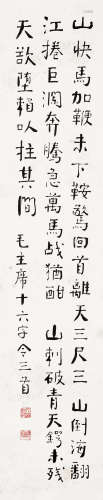 山快馬加鞭未下鞍驚回首離天三尺三 山倒海翻
江捲巨瀾奔騰急萬馬战猶酣 山刺破青天鍔未残
天欲墮賴以柱其間 毛主席十六字令三首